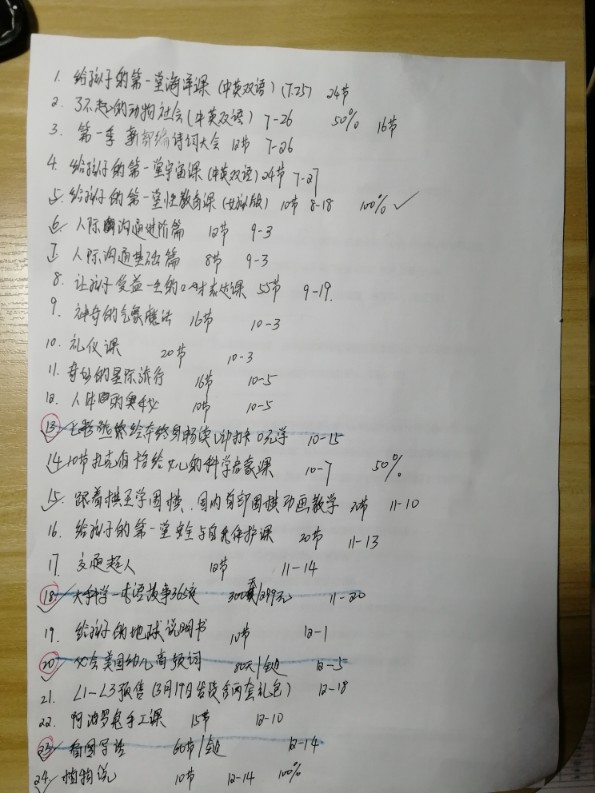 1. 给孩子的第一堂海洋课 (中英双语) (7.25) 24节
2. 了不起的动物社会 (中英双语) 7-26 50% 16节
3. 第一季 新部编诗词大会 12节 7-26
4. 给孩子的第一堂宇宙课 (中英双语) 24节 7-27
5. 给孩子的第一堂性教育课 (女孩版) 10节 8-18 100% ✓
6. 人际沟通进阶篇 12节 9-3
7. 人际沟通基础篇 8节 9-3
8. 让孩子受益一生的口才表达课 55节 9-19.
9. 神奇的气象魔法 16节 10-3
10. 礼仪课 20节 10-3
11. 奇妙的星际旅行 16节 10-5
12. 人体的奥秘 10节 10-5
13. 绘本终身畅读 打卡0元学 10-15
14. 10节扎克伯格给女儿的科学启蒙课 10-7 50%
15. 跟着棋圣学围棋、国内首部围棋动画教学 11-10
16. 给孩子的第一堂安全与自我保护课 20节 11-13
17. 交通超人 12节 11-14
18. 大科学一本语故事365夜 11-20
19. 给孩子的地球说明书 10节 12-1
20. 必会美国幼儿高频词 12-5
21. L1-L3预售 (3月19日发货含两套礼包) 12-18
22. 阿波罗龟手工课 15节 12-10
23. 看图写话 60节 12-14
24. 植物说 10节 12-14 100%